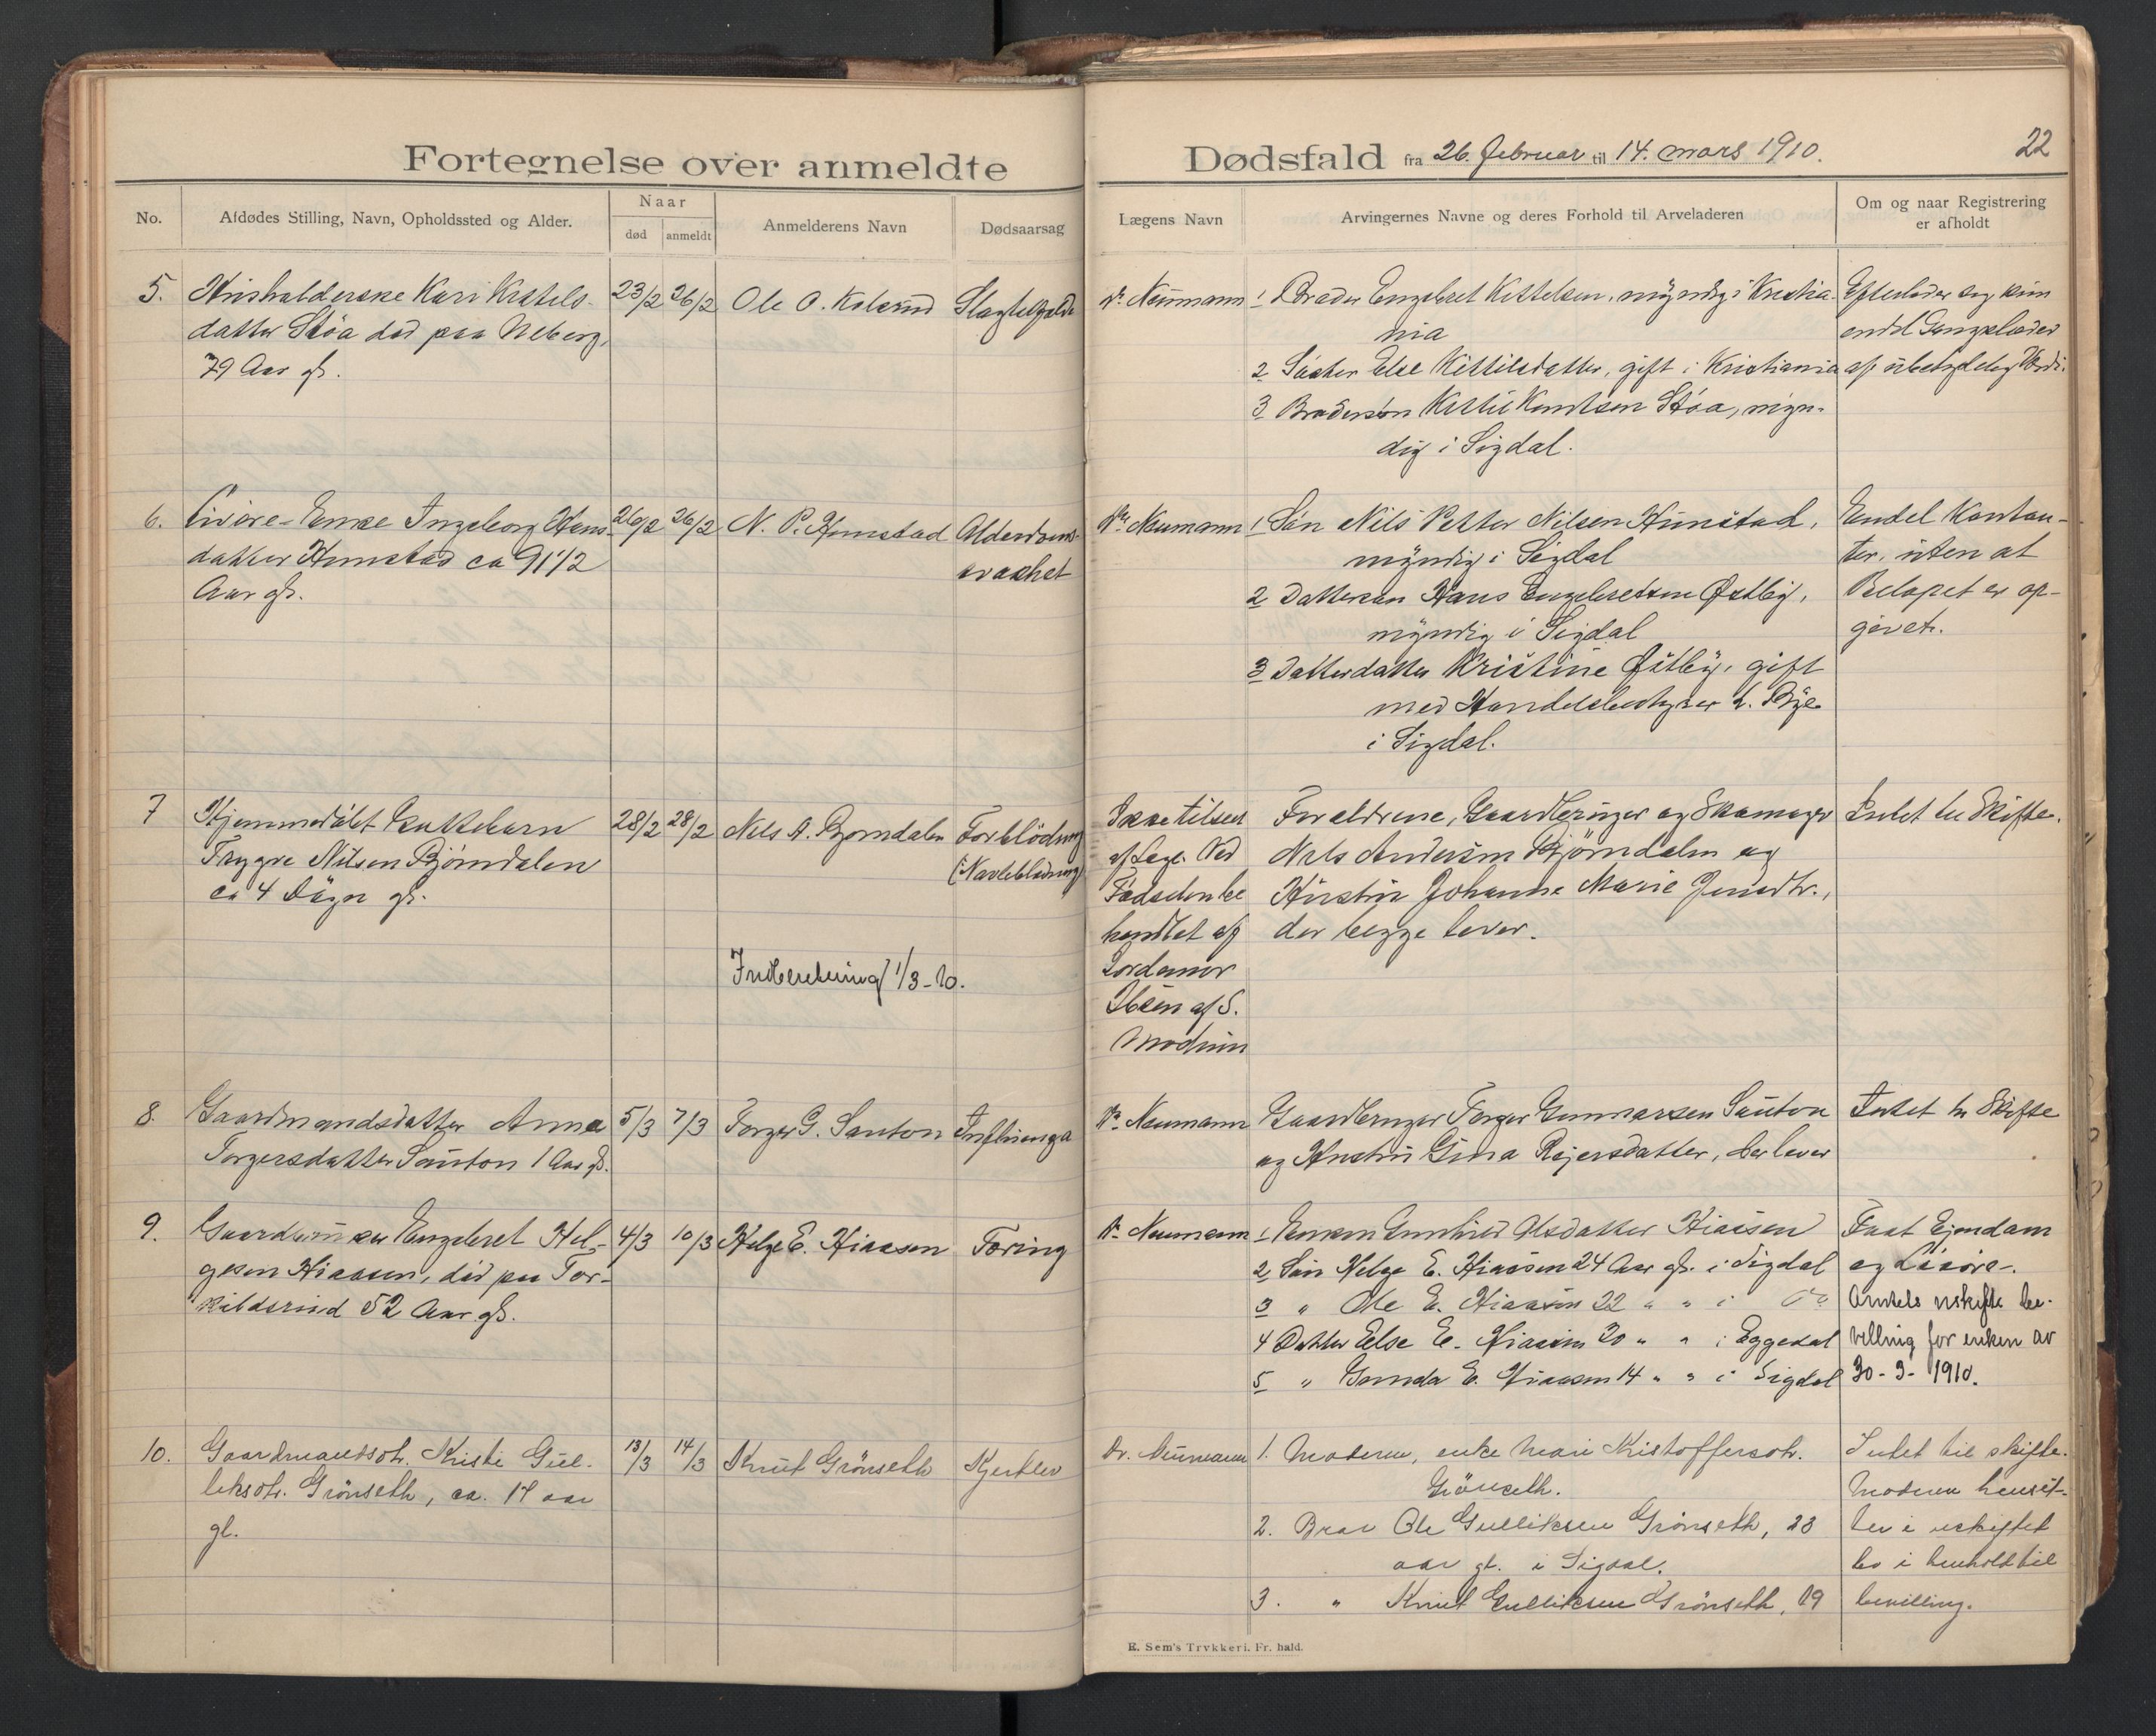 Fortegnelse over anmeldte
No.
Afdødes Stilling, Navn, Opholdssted og Alder.
Naar
død
anmeldt
Anmelderens Navn
Dødsaarsag
5.
Husholderske Kari Kittels-
datter Støa død paa Neberg,
79 Aar gl.
23/2
26/2
Ole O. Kolsrud
Slagtilfælde
6.
Livøre-Enke Ingeborg Hans-
datter Hunstad ca 91 1/2
Aar gl.
26/2
26/2
N. P. Hunstad
Alderdoms-
svakhet
7
Hjemmedøbt Guttebarn
Trygve Nilsen Bjørndalen
ca 4 Døgn gl.
28/2
28/2
Nils A. Bjørndalen
Forblödning
(Navleblødning)
Indberetning 1/3-10.
8.
Gaardmandsdatter Anna
Torgersdatter Sauton 1 Aar gl.
5/3
7/3
Torger G. Sauton
Influenza
9.
Gaardbruker Engebret Hel-
gesen Hiaasen, död paa Tor-
kildsrud 52 Aar gl.
4/3
10/3
Helge E. Hiaasen
Tæring
10.
Gaardmandsdtr. Kristi Gul-
liksdtr. Grönseth, ca. 17 aar
gl.
13/3
14/3
Knut Grönseth
Kjertler
Dødsfald fra 26. februar til 14. mars 1910.
22
Lægens Navn
Arvingernes Navne og deres Forhold til Arveladeren
Om og naar Registrering
er afholdt
Dr. Neumann
1 Broder Engebret Kittelsen, myndig i Kristia-
nia
2 Søster Else Kittilsdatter, gift i Kristiania
3 Brodersøn Kittil Knutsen Støa, myn-
dig i Sigdal.
Efterlader sig kun
endel Gangklæder
af ubetydelig Værdi.
Dr. Neumann
1 Søn Nils Petter Nilsen Hunstad,
myndig i Sigdal
2 Dattersøn Hans Engebretsen Østby,
myndig i Sigdal
3 Datterdatter Kristine Østby, gift
med Handelsbestyrer L. Bye
i Sigdal.
Endel Kontan-
ter, uten at
Beløpet er op-
givet.
Ikke tilseet
af Læge. Ved
Fødselen be
handlet af
Jordemor
Ibsen af S.
Modum
Forældrene, Gaardbruger og Skomager
Nils Andersen Bjørndalen og
Hustru Johanne Marie Jensdtr.,
der begge lever.
Intet til Skifte.
Dr. Neumann
Gaardbruger Torger Gunnarsen Sauton
og Hustru Gina Reiersdatter, der lever
Intet til Skifte
Dr. Neumann
1 Enken Gunhild Olsdatter Hiaasen
2 Søn Helge E. Hiaasen 24 Aar gl. i Sigdal
3 " Ole E. Hiaasen 22 " " i do
4 Datter Else E. Hiaasen 20 " " i Eggedal
5 " Gunda E. Hiaasen 14 " " i Sigdal
Fast Ejendom
og Løsøre.
Amtets uskifte be-
villing for enken av
30-3-1910.
Dr. Neumann
1. Moderen, enke Mari Kristoffersdtr.
Grönseth.
2. Bror Ole Gulliksen Grönseth, 23
aar gl. i Sigdal.
3. " Knut Gulliksen Grönseth, 19
Intet til skifte.
Moderen hensit-
ter i uskiftet
bo i henhold til
bevilling.
E. Sem's Trykkeri. Fr. hald.